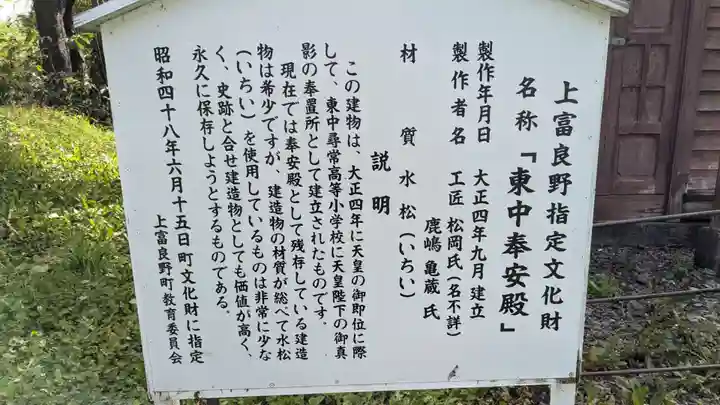 上富良野指定文化財
名称「東中奉安殿」
製作年月日 大正四年九月 建立
製作者名 工匠 松岡氏(名不詳)
鹿嶋 亀蔵 氏
材質 水松(いちい)
説明
この建物は、大正四年に天皇の御即位に際
して、東中尋常高等小学校に天皇陛下の御真
影の奉置所として建立されたものです。
現在では奉安殿として残存している建造
物は希少ですが、建造物の材質が総べて水松
(いちい)を使用しているものは非常に少な
く、史跡と合せ建造物としても価値が高く、
永久に保存しようとするものである。
昭和四十八年六月十五日 町文化財に指定
上富良野町教育委員会